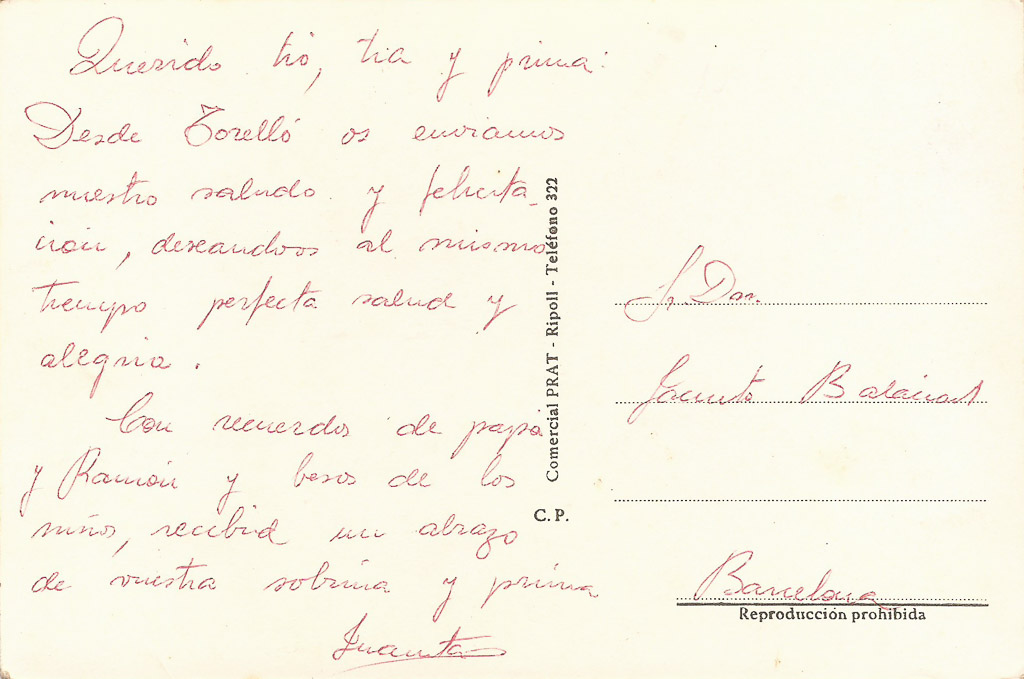 Querido tió, tia y prima:
Desde Torelló os enviamos
nuestro saludo y felicita-
ción, deseandoos al mismo
tiempo perfecta salud y
alegria.
Con recuerdos de papá
y Ramón y besos de los
niños, recibid un abrazo
de vuestra sobrina y prima
Juanita
Comercial PRAT - Ripoll - Teléfono 322
C. P.
Sr Don.
Jacinto
Barcelona
Reproducción prohibida